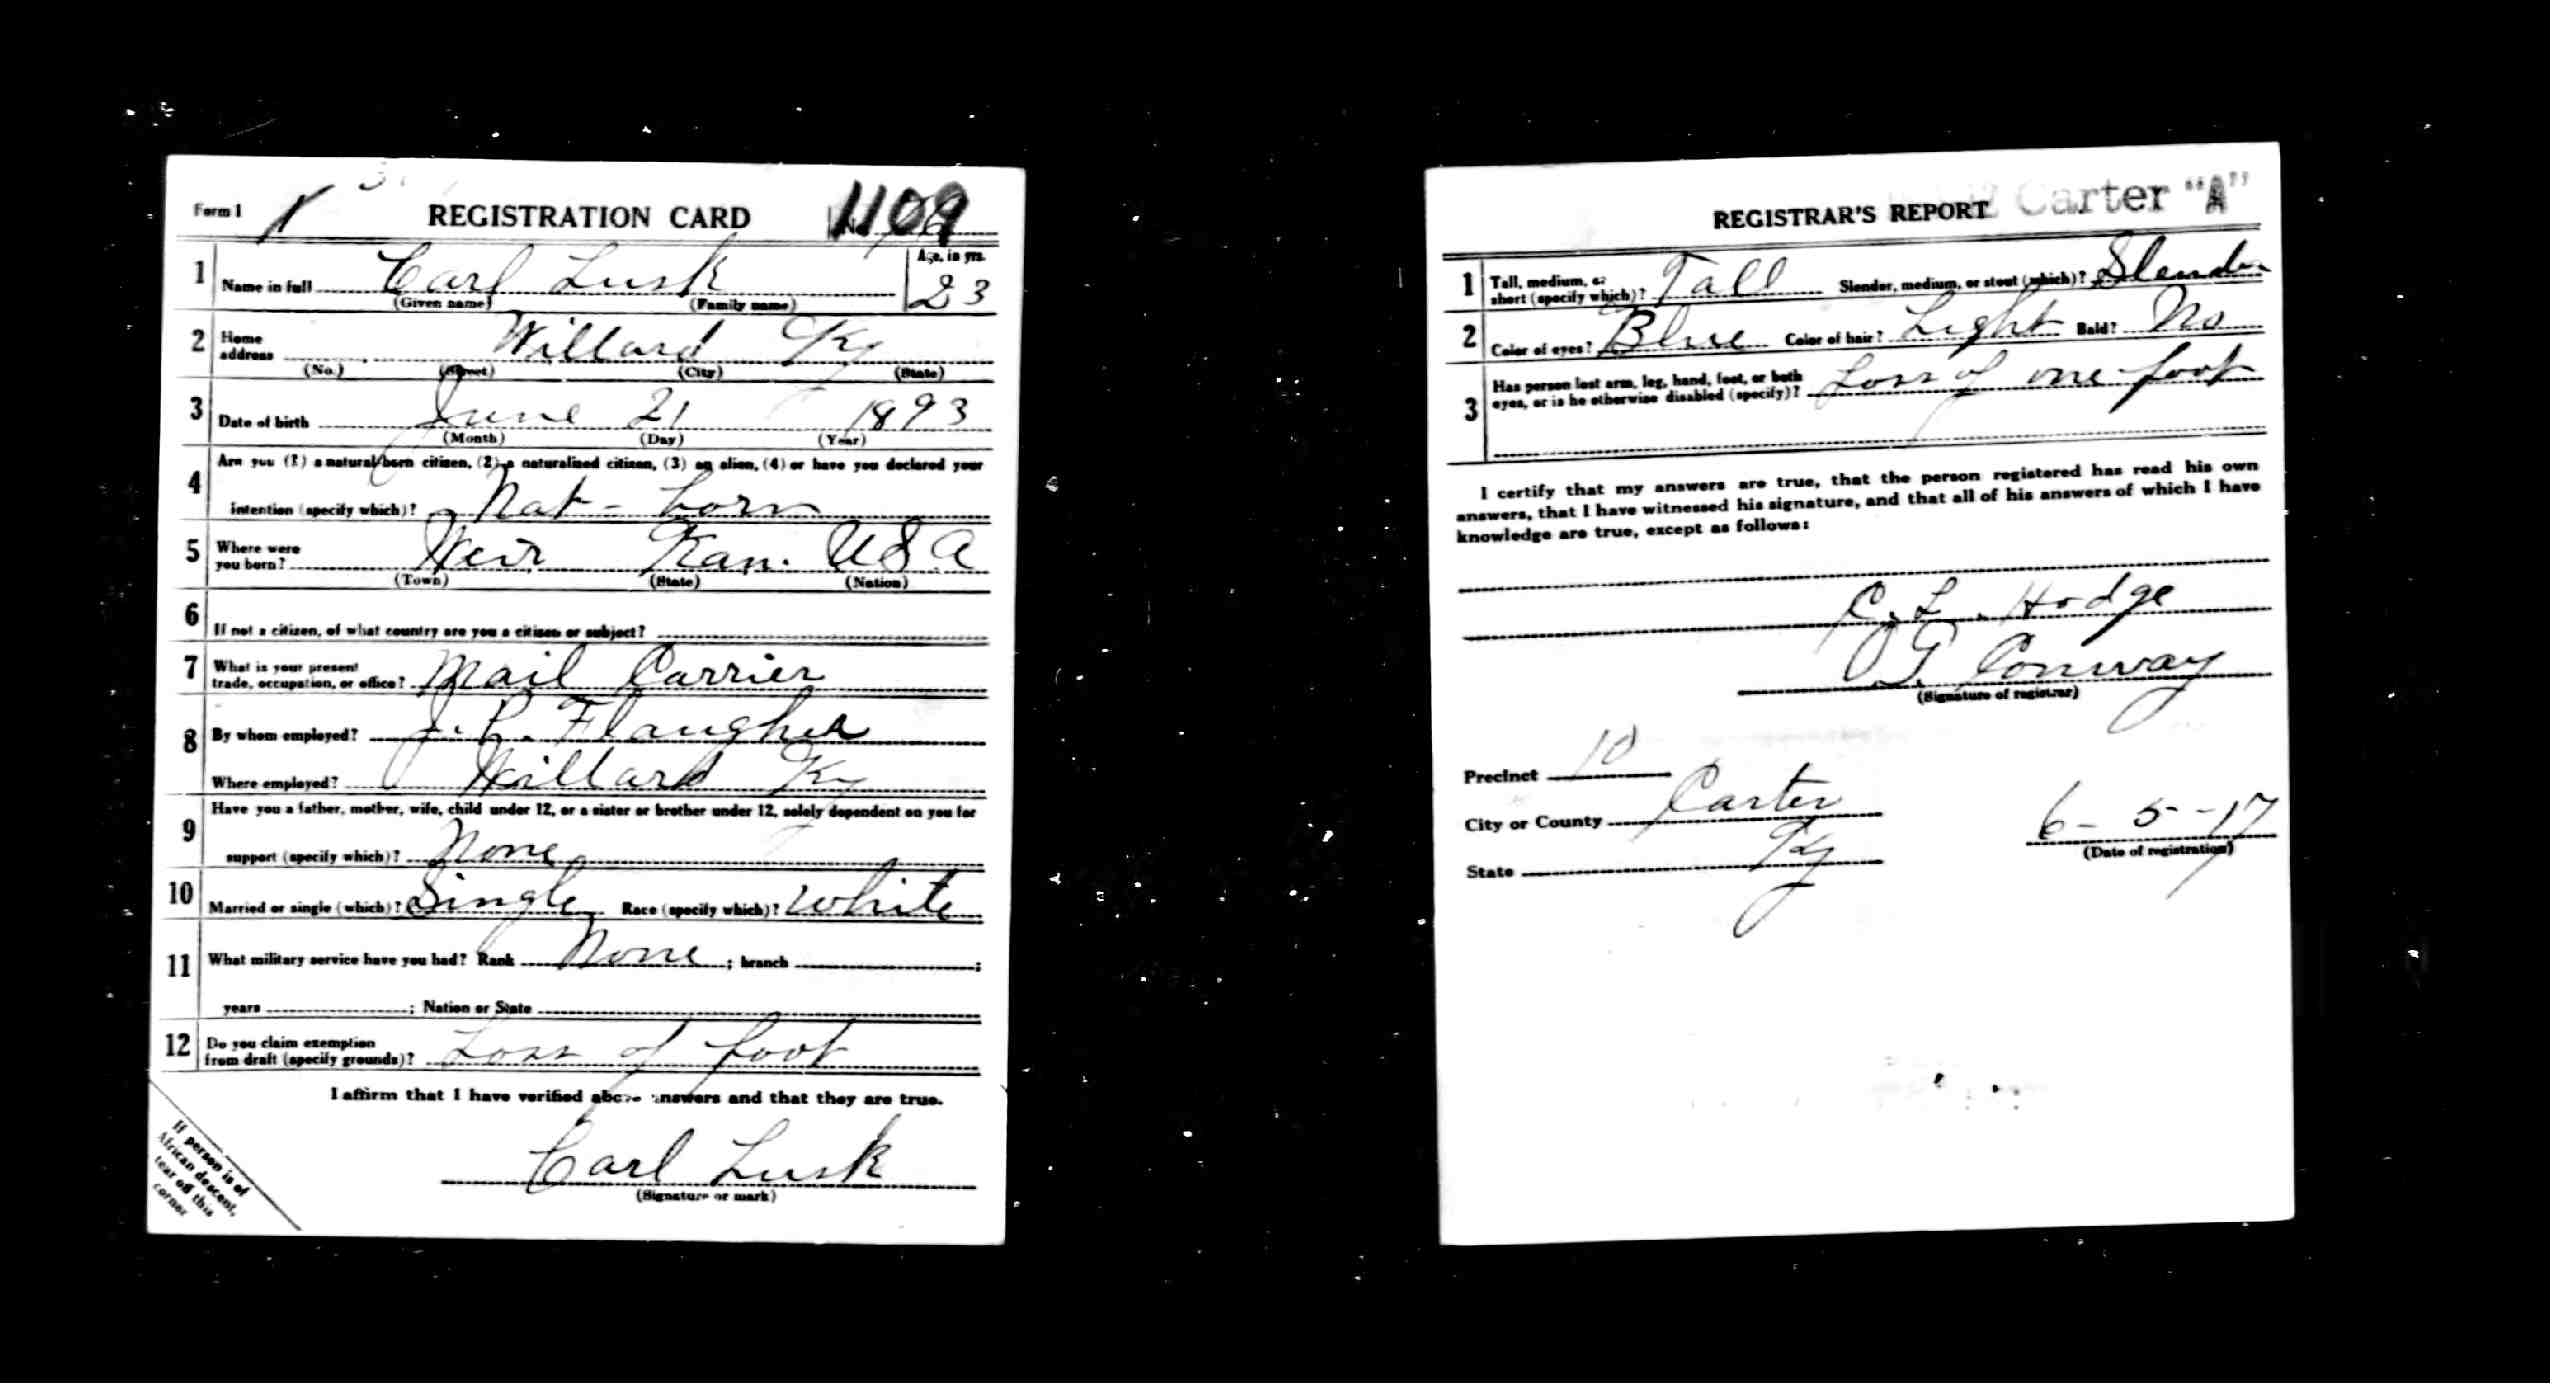 Form 1 REGISTRATION CARD 1109
1 Name in full Carl Lusk Age, in yrs. 23
(Given name) (Family name)
2 Home address Willard Ky
(No.) (Street) (City) (State)
3 Date of birth June 21 1893
(Month) (Day) (Year)
4 Are you (1) a natural born citizen, (2) a naturalized citizen, (3) an alien, (4) or have you declared your
intention (specify which)? Nat - born
5 Where were you born? Weir Kan. USA
(Town) (State) (Nation)
6 If not a citizen, of what country are you a citizen or subject?
7 What is your present trade, occupation, or office? Mail Carrier
8 By whom employed? Flaugher
Where employed? Willard Ky
9 Have you a father, mother, wife, child under 12, or a sister or brother under 12, solely dependent on you for
support (specify which)? None
10 Married or single (which)? Single Race (specify which)? White
11 What military service have you had? Rank None ; branch ;
years ; Nation or State
12 Do you claim exemption from draft (specify grounds)? Loss of foot
I affirm that I have verified above answers and that they are true.
Carl Lusk
(Signature or mark)
If person is of
African descent,
tear off this
corner
REGISTRAR'S REPORT Carter "A"
1 Tall, medium, or short (specify which)? Tall Slender, medium, or stout (which)? Slender
2 Color of eyes? Blue Color of hair? Light Bald? No
3 Has person lost arm, leg, hand, foot, or both eyes, or is he otherwise disabled (specify)? Loss of one foot
I certify that my answers are true, that the person registered has read his own
answers, that I have witnessed his signature, and that all of his answers of which I have
knowledge are true, except as follows:
C. L. Hodge
Conway
(Signature of registrar)
Precinct 10
City or County Carter
State Ky
6-5-17
(Date of registration)